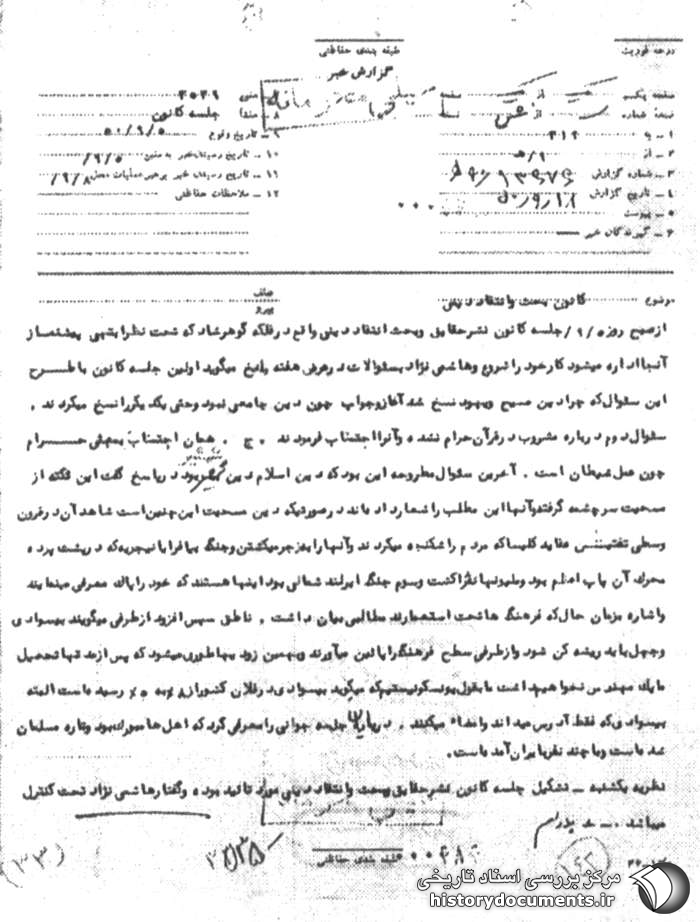 درجه فوریت
طبقه بندی حفاظتی
گزارش خبر
صفحه یکم از صفحه
نسخه شماره از نسخه
۱ - به ۳۱۲
۲ - از ۹/ هـ
۳ - شماره گزارش
۴ - تاریخ گزارش
۵ - پیوست
۶ - گیرندگان خبر
۷ - منبع ۲۵۲۹
۸ - منشا جلسه کانون
۹ - تاریخ وقوع ۵۰/۹/۵
۱۰ - تاریخ رسیدن خبر به منبع ۹/۵/
۱۱ - تاریخ رسیدن خبر برهبر عملیات ۹/۸/
۱۲ - ملاحظات حفاظتی
موضوع کانون بحث وانتقاد دینی
عطف
پیرو
از صبح روز ۹/۵/ جلسه کانون نشر حقایق وبحث انتقاد دینی واقع در فلکه گوهرشاد که تحت نظر ابتهی پیشنماز
آنجا اداره میشود کار خود را شروع وهاشمی نژاد بسئوالات در عرض هفته پاسخ میگوید اولین جلسه کانون با طرح
این سئوال که چرا دین مسیح ویهود نسخ شد آغاز وجواب چون دین جامعی نبود وحتی یک یک را نسخ میکردند .
سئوال دوم درباره مشروب در قرآن حرام نشده وآنرا اجتناب فرمودند . ج . همان اجتناب بمعنی حرام
چون عمل شیطان است . آخرین سئوال مطروحه این بود که دین اسلام دین بود در پاسخ گفت این نکته از
مسحیت سرچشمه گرفته وآنها این مطلب را شعار داده اند در صورتیکه دین مسحیت این چنین است شاهد آن در قرون
وسطی تفتیش عقاید کلیسا که مردم را شکنجه میکردند وآنها را بزجر میکشتن وجنگ بیافرا با نیجریه که در پشت پرده
محرک آن پاپ اعظم بود وملیونها نفر را کشت وسوم جنگ ایرلند شمالی بود اینها هستند که خود را پاک معرفی مینمایند
واشاره بزمان حال که فرهنگ ها تحت استعمارند مطالبی بیان داشت . ناطق سپس افزود از طرفی میگویند بیسوادی
وجهل باید ریشه کن شود واز طرفی سطح فرهنگ را پائین میآورند وبهمین زودیها طوری میشود که پس از مدتها تحصیل
ما یک مهندس نخواهیم داشت ما بقول یونسکو نیستیم که میگوید بیسوادی در فلان کشور از ٪ به ٪ رسیده است البته
بیسوادی که فقط آدرس میداند وامضاء میکند . در پایان جلسه جوانی را معرفی کرد که اهل هامبورگ بود وتازه مسلمان
شده است وبا چند نفر بایران آمده است .
نظریه یکشنبه - تشکیل جلسه کانون نشر حقایق وبحث وانتقاد دینی مورد تائید بوده وگفتار هاشمی نژاد تحت کنترل
میباشد .
طبقه بندی حفاظتی
(۳۳)
مرکز بررسی اسناد تاریخی
historydocuments.ir